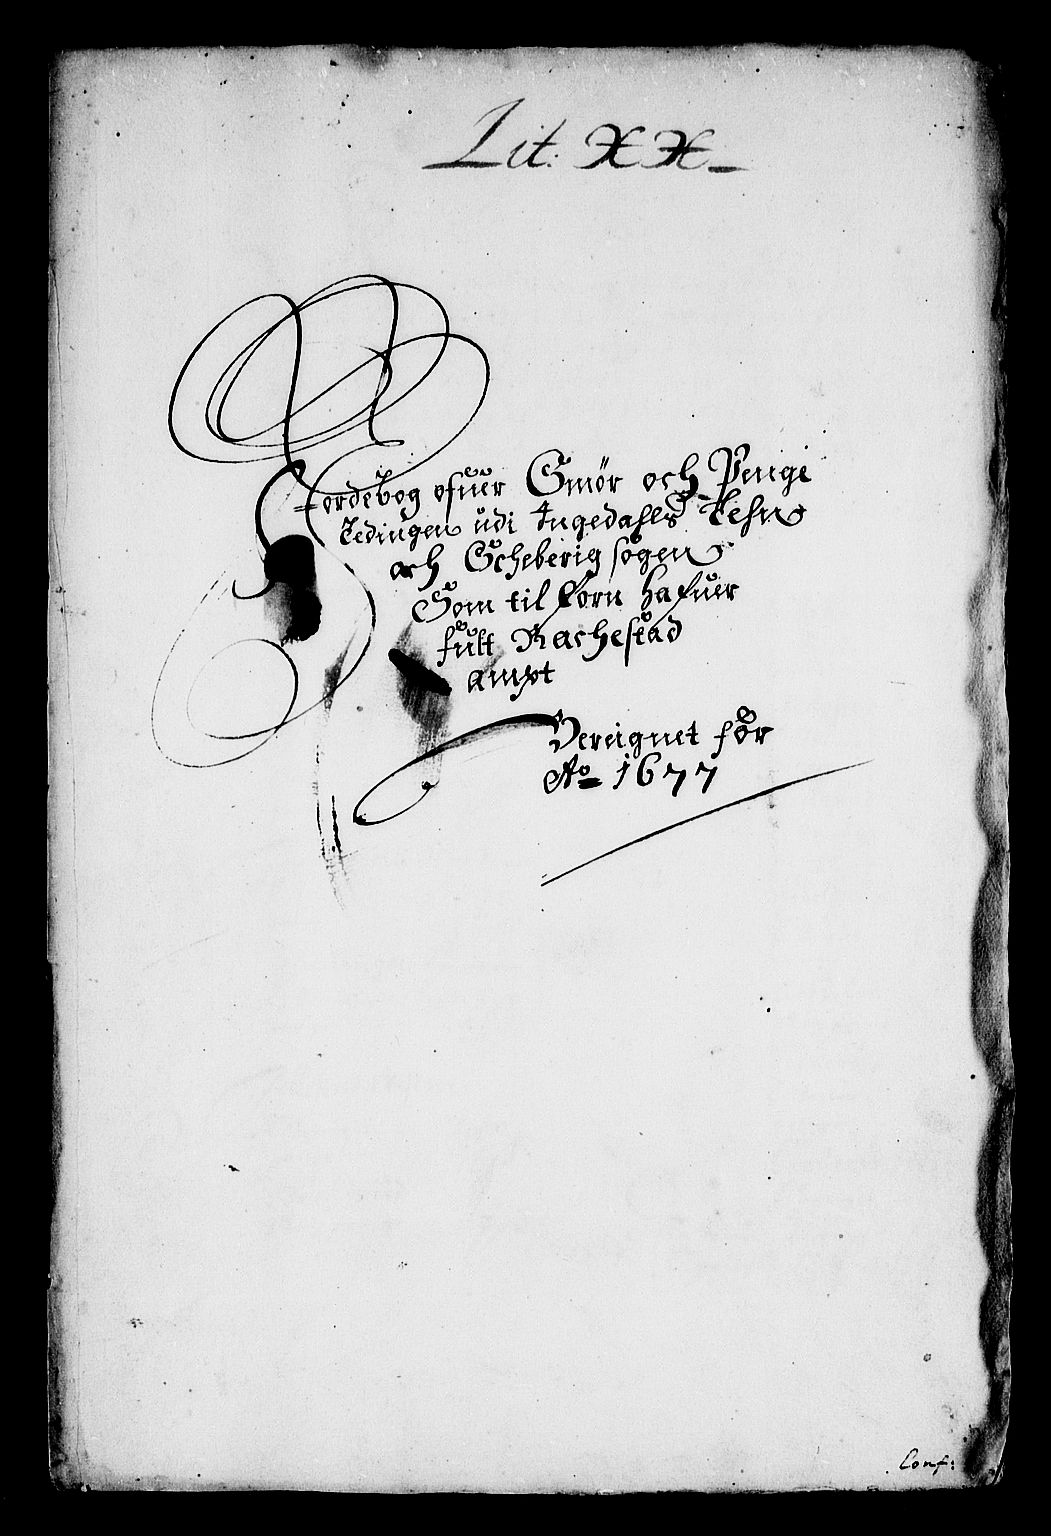 Lit: XX
Jordebog ofuer Smör och Penge
Tedingen udi Ingedahls Lehn
och Scheberig sogen
Som til forn hafuer
fult Rachestad
ampt
Bereignet för
Ao 1677
Conf: